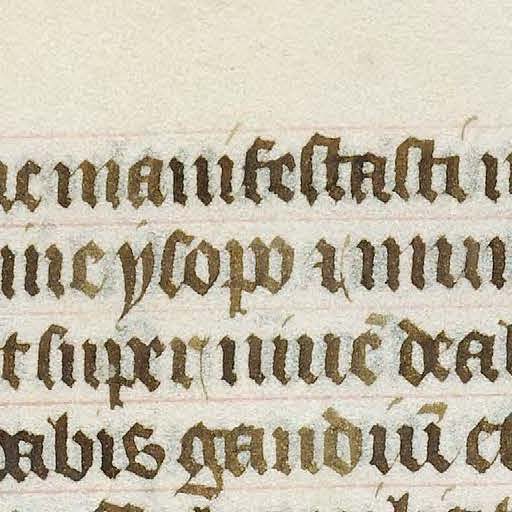 manifestasti
me ysopo ⁊ mun
t super niuē dealb
abis gaudiū